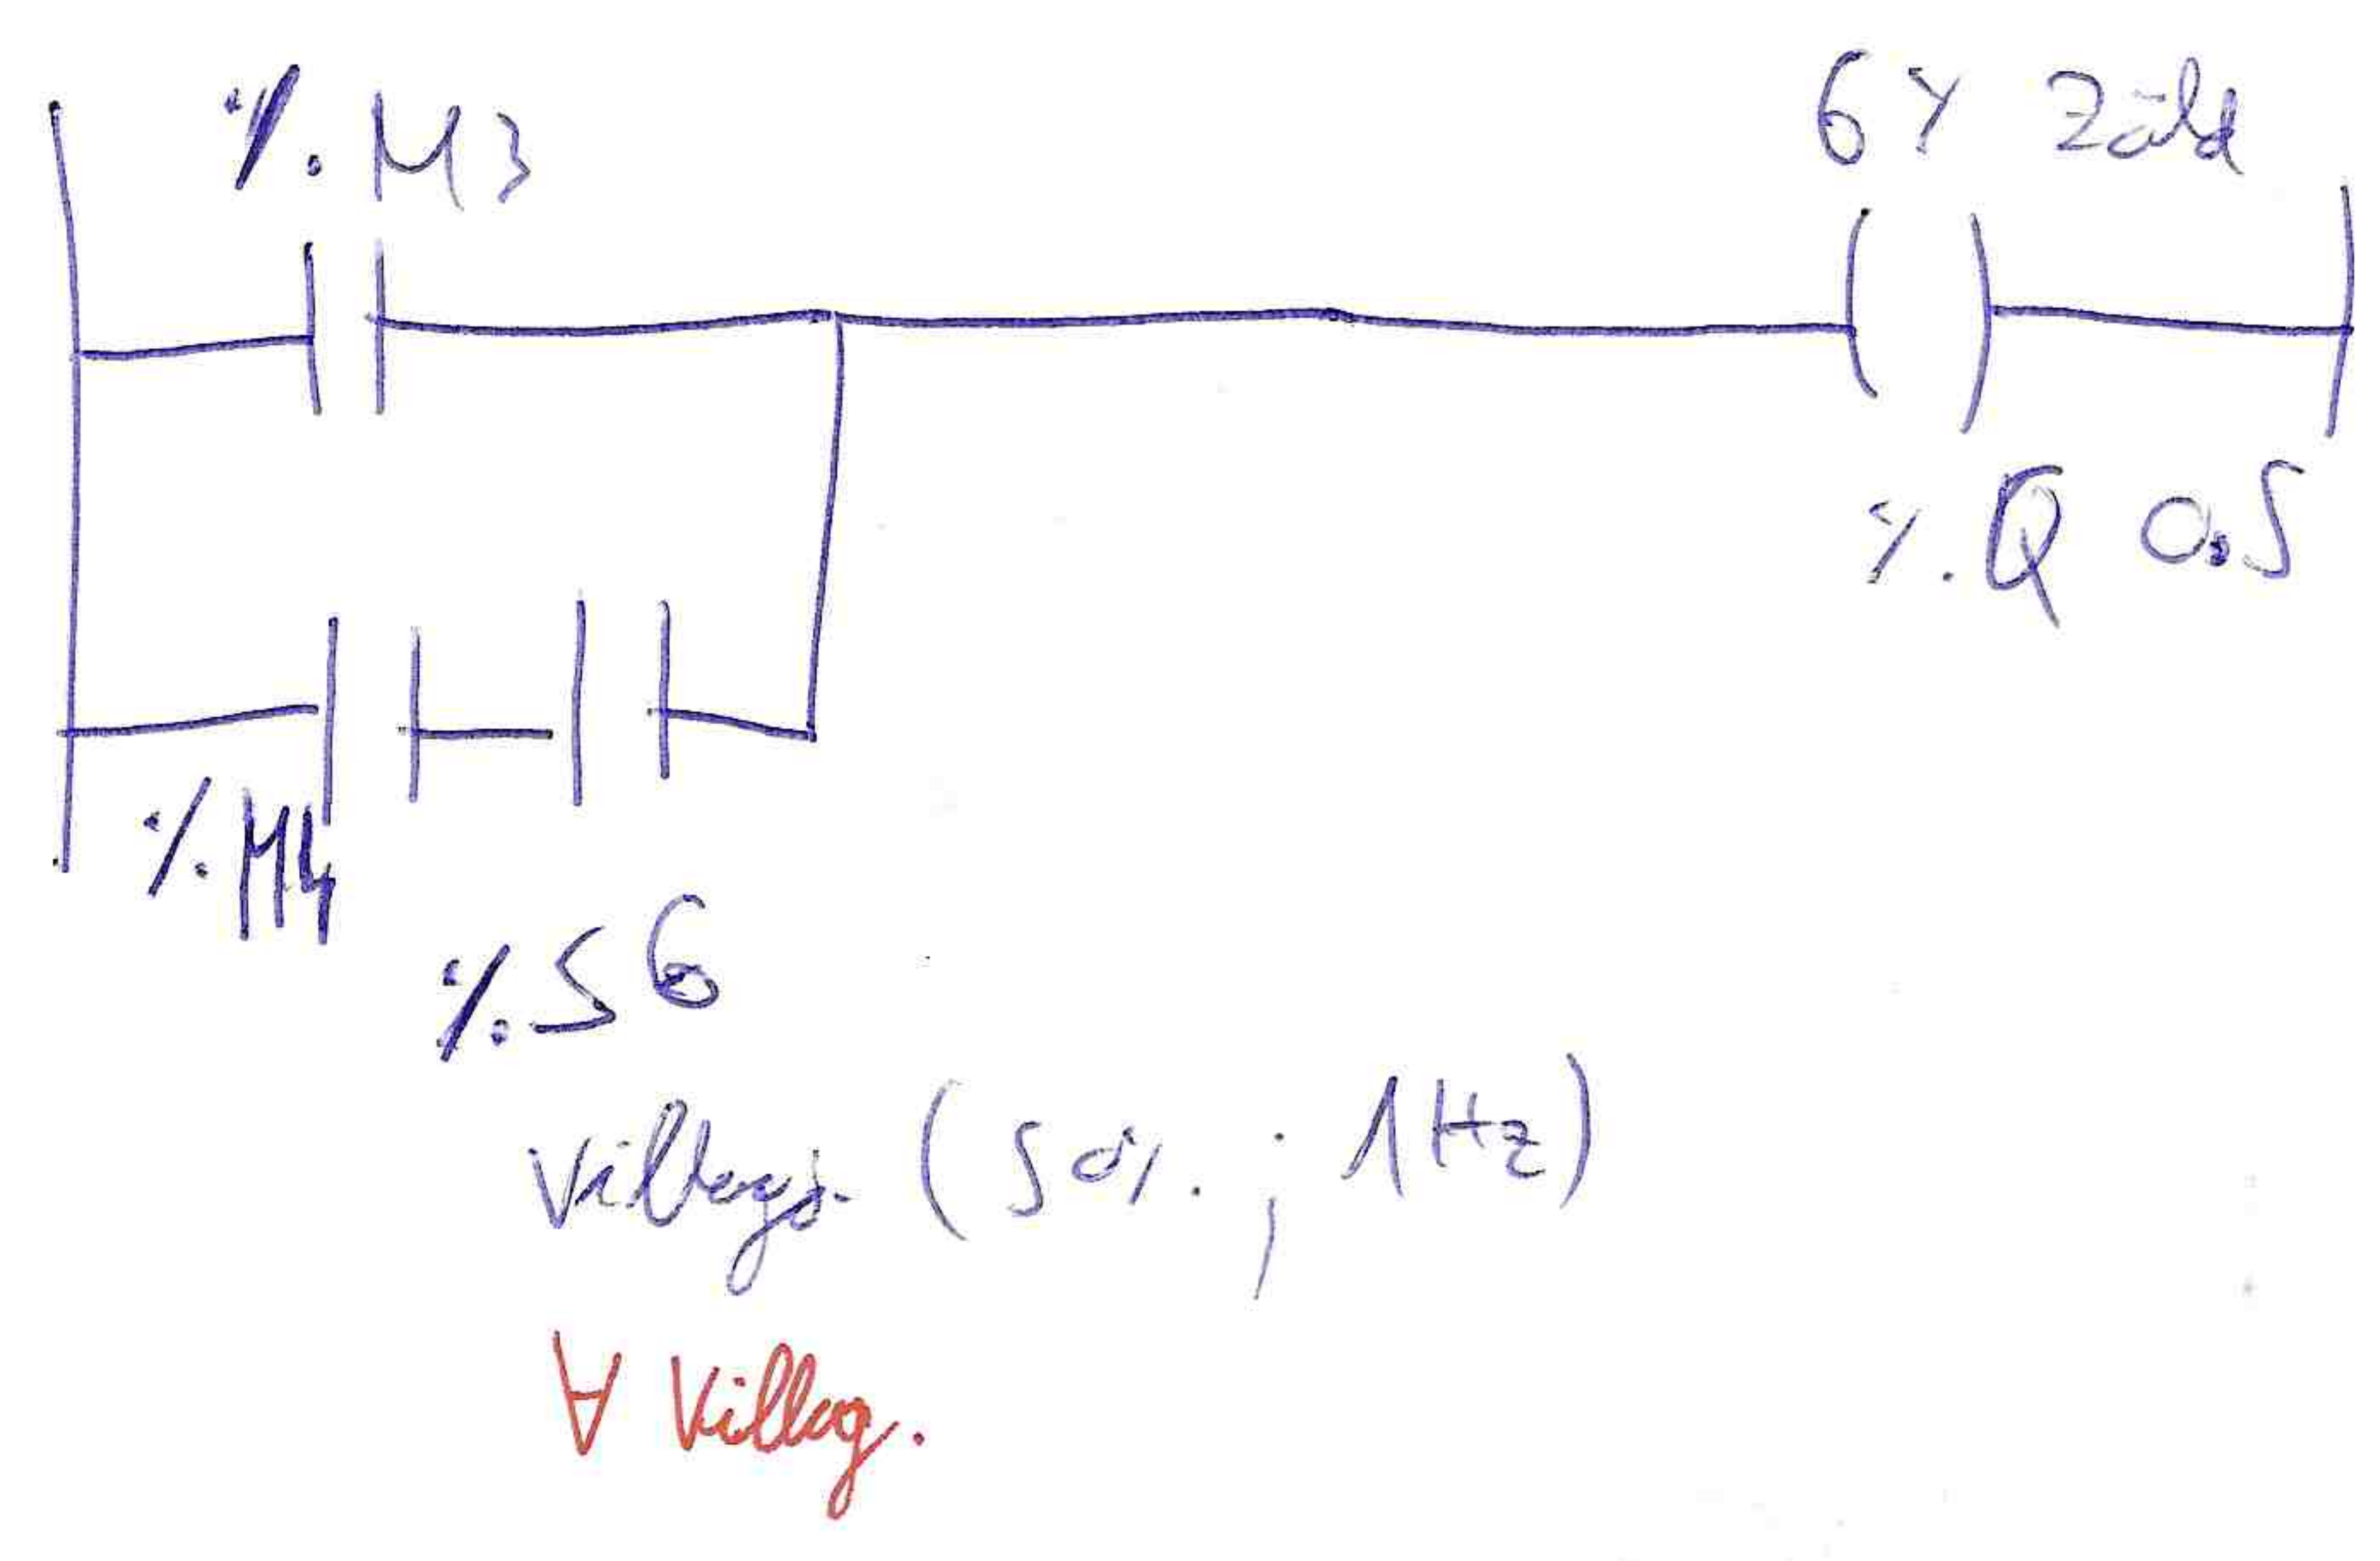 %M3
6Y Zöld
%Q 0.5
%M4
%S6
Villogó (50%; 1Hz)
∀ Villog.